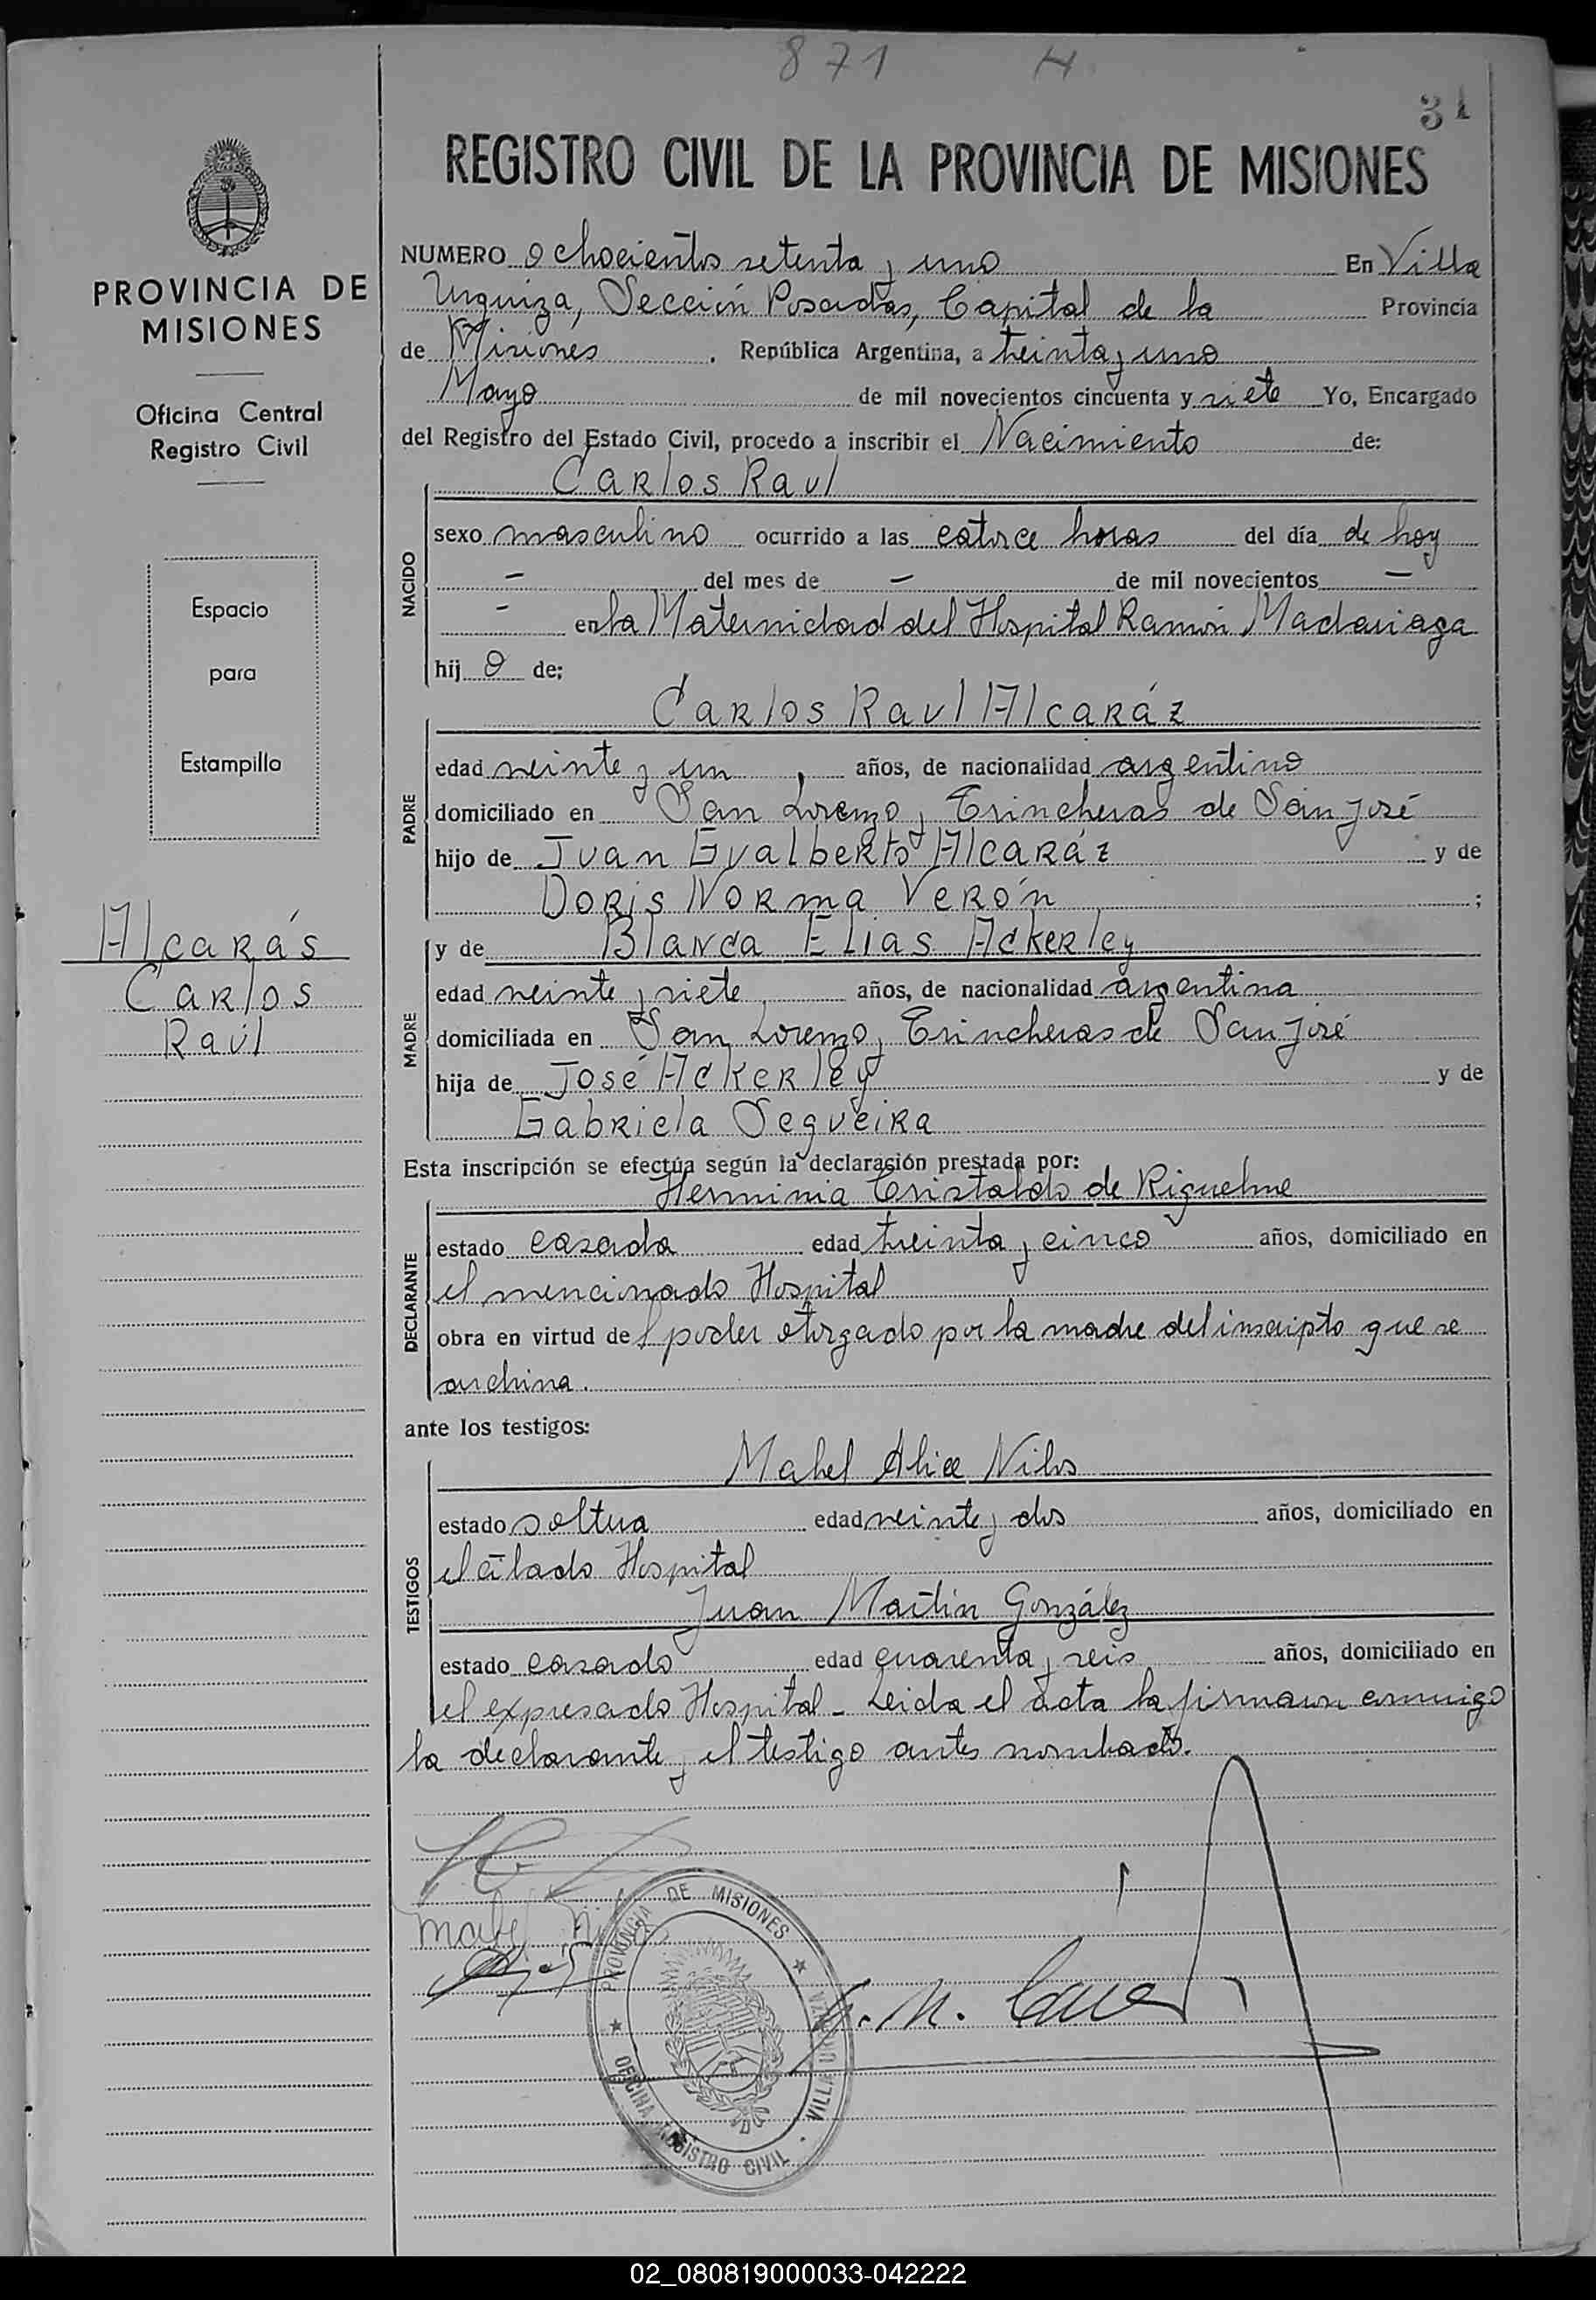 871 H
31
REGISTRO CIVIL DE LA PROVINCIA DE MISIONES
PROVINCIA DE
MISIONES
Oficina Central
Registro Civil
Espacio
para
Estampilla
Alcarás
Carlos
Raúl
NUMERO ochocientos setenta y uno En Villa
Urquiza, Sección Posadas, Capital de la Provincia
de Misiones, República Argentina, a treinta y uno
Mayo de mil novecientos cincuenta y siete Yo, Encargado
del Registro del Estado Civil, procedo a inscribir el Nacimiento de:
Carlos Raul
NACIDO
sexo masculino ocurrido a las catorce horas del día de hoy
- del mes de - de mil novecientos -
- en la Maternidad del Hospital Ramón Madariaga
hijo de;
Carlos Raul Alcaráz
PADRE
edad veinte y un años, de nacionalidad argentino
domiciliado en San Lorenzo y Trincheras de San José
hijo de Juan Gualberto Alcaráz y de
Doris Norma Verón ;
y de Blanca Elias Ackerley
MADRE
edad veinte y siete años, de nacionalidad argentina
domiciliada en San Lorenzo y Trincheras de San José
hija de José Ackerley y de
Gabriela Segueira
Esta inscripción se efectúa según la declaración prestada por:
Herminia Cristaldo de Riquelme
DECLARANTE
estado casada edad treinta y cinco años, domiciliado en
el mencionado Hospital
obra en virtud del poder otorgado por la madre del inscripto que se
archiva.
ante los testigos:
Mabel Alice Nilos
TESTIGOS
estado soltera edad veinte y dos años, domiciliado en
el citado Hospital
Juan Martin González
estado casado edad cuarenta y seis años, domiciliado en
el expresado Hospital - Leida el acta la firmaron conmigo
la declarante y el testigo antes nombrado.
Mabel
PROVINCIA DE MISIONES
OFICINA REGISTRO CIVIL · VILLA URQUIZA
02_080819000033-042222